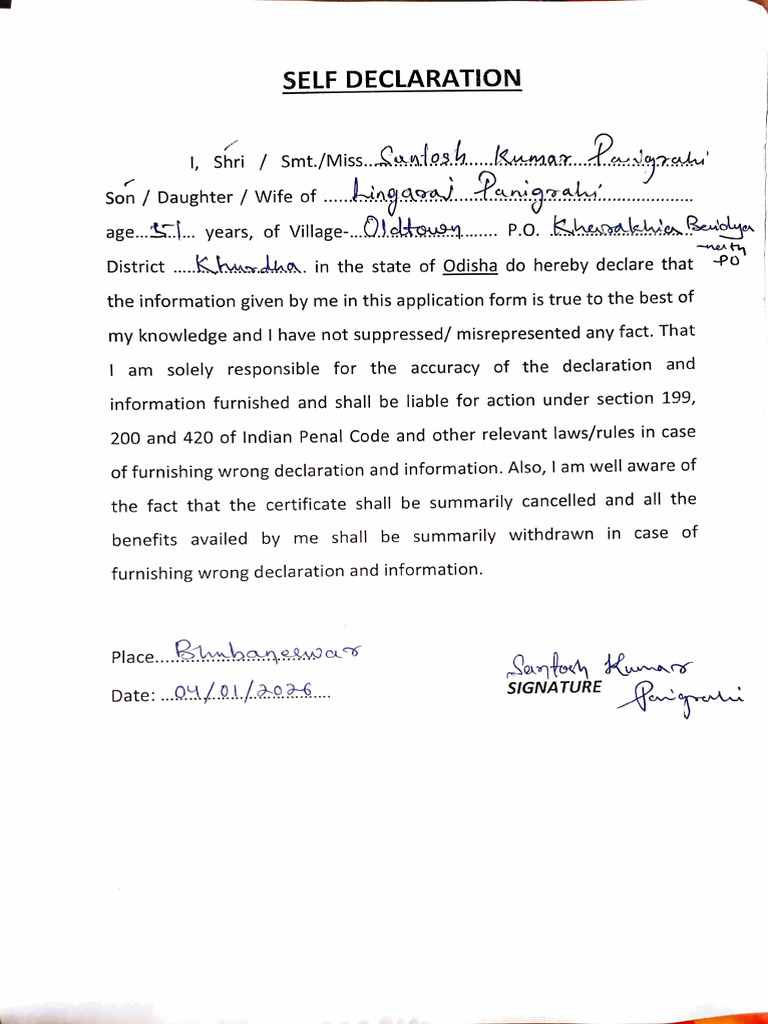 SELF DECLARATION
I, Shri / Smt./Miss...Santosh Kumar Panigrahi
Son / Daughter / Wife of ......Lingaraj Panigrahi..................
age...51... years, of Village-...Oldtown....... P.O. Kharakhia Baidya
District .....Khurdha. in the state of Odisha do hereby declare that
PO
the information given by me in this application form is true to the best of
my knowledge and I have not suppressed/ misrepresented any fact. That
I am solely responsible for the accuracy of the declaration and
information furnished and shall be liable for action under section 199,
200 and 420 of Indian Penal Code and other relevant laws/rules in case
of furnishing wrong declaration and information. Also, I am well aware of
the fact that the certificate shall be summarily cancelled and all the
benefits availed by me shall be summarily withdrawn in case of
furnishing wrong declaration and information.
Place....Bhubaneswar
Date: ...04/01/2026....
Santosh Kumar
SIGNATURE
Panigrahi